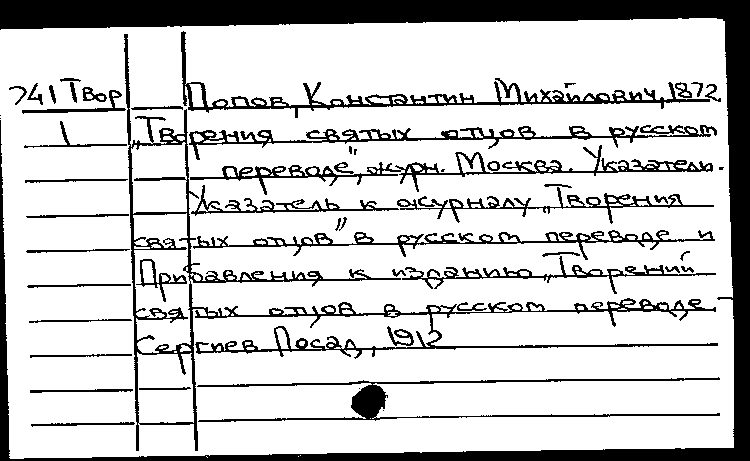 241 Твор Попов, Константин Михайлович, 1872
1 „Творения святых отцов в русском
переводе", журн. Москва. Указатель.
Указатель к журналу „Творения
святых отцов" в русском переводе и
Прибавления к изданию „Творений
святых отцов в русском переводе –
Сергиев Посад, 1912